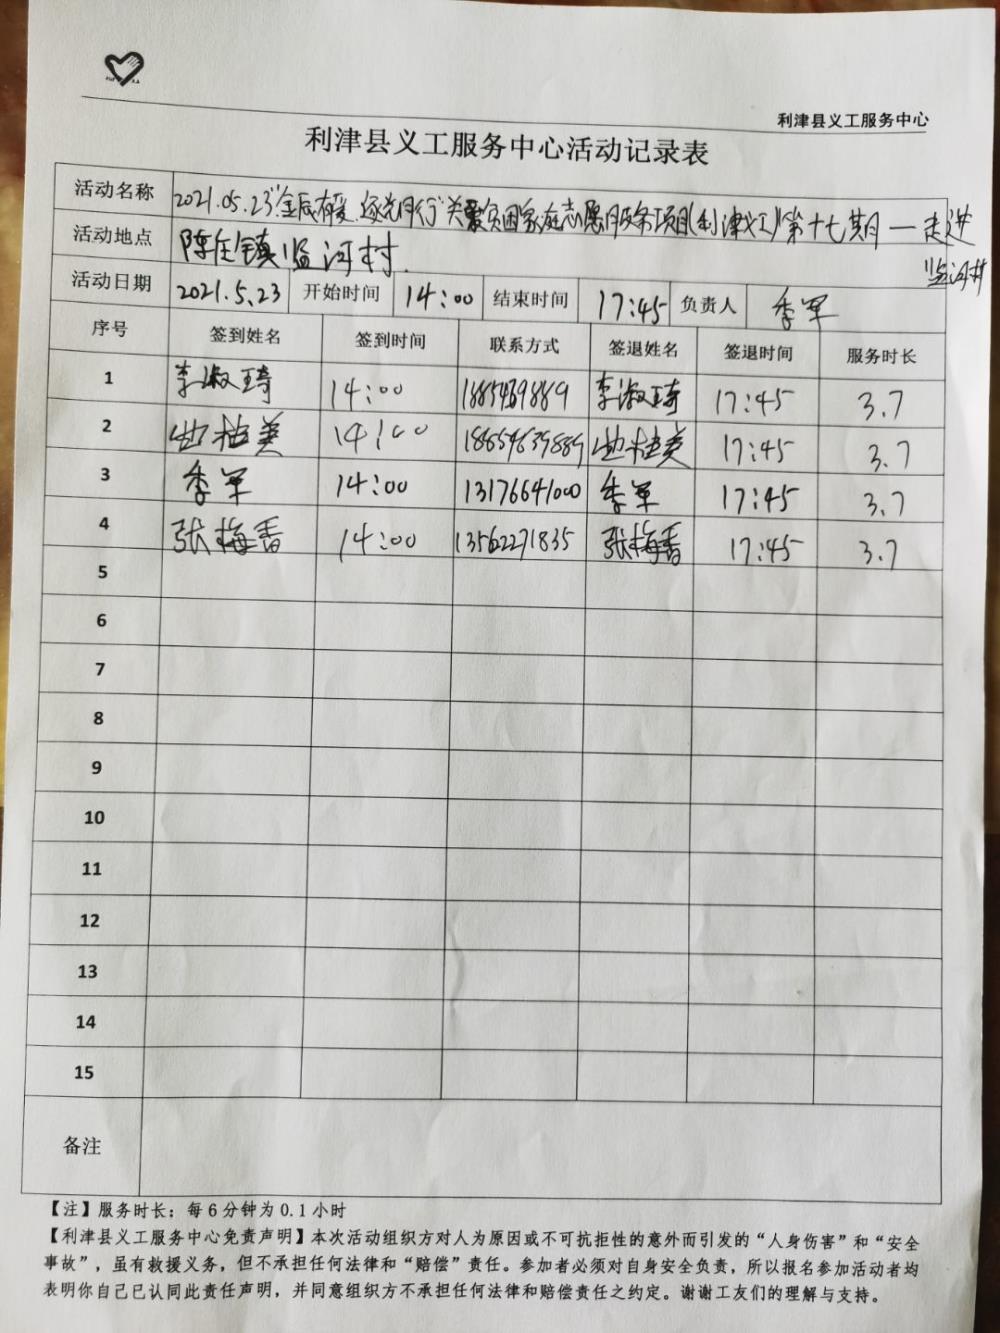 利津县义工服务中心
利津县义工服务中心活动记录表
活动名称 2021.05.23"金辰有爱.逐光同行"关爱贫困家庭志愿服务项目(利津义工)第十七期—走进
监河村
活动地点 陈庄镇监河村.
活动日期 2021.5.23 开始时间 14:00 结束时间 17:45 负责人 季军
序号 签到姓名 签到时间 联系方式 签退姓名 签退时间 服务时长
1 李淑琦 14:00 李淑琦 17:45 3.7
2 14:00 17:45 3.7
3 季军 14:00 13176641000 季军 17:45 3.7
4 张梅香 14:00 13562271835 张梅香 17:45 3.7
5
6
7
8
9
10
11
12
13
14
15
备注
【注】服务时长：每6分钟为0.1小时
【利津县义工服务中心免责声明】本次活动组织方对人为原因或不可抗拒性的意外而引发的“人身伤害”和“安全
事故”，虽有救援义务，但不承担任何法律和“赔偿”责任。参加者必须对自身安全负责，所以报名参加活动者均
表明你自己已认同此责任声明，并同意组织方不承担任何法律和赔偿责任之约定。谢谢工友们的理解与支持。